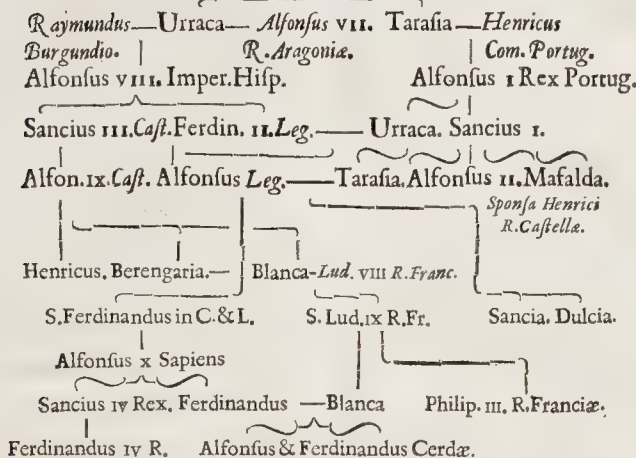 Raymundus—Urraca—Alfonſus VII. Taraſia—Henricus
Burgundio. R. Aragoniæ. Com. Portug.
Alfonſus VIII. Imper. Hiſp. Alfonſus I Rex Portug.
Sancius III. Caſt. Ferdin. II. Leg.—Urraca. Sancius I.
Alfon. IX. Caſt. Alfonſus Leg.—Taraſia. Alfonſus II. Mafalda.
Sponſa Henrici
R. Caſtellæ.
Henricus. Berengaria.—Blanca-Lud. VIII R. Franc.
S. Ferdinandus in C. & L. S. Lud. IX R. Fr. Sancia. Dulcia.
Alfonſus X Sapiens
Sancius IV Rex. Ferdinandus—Blanca Philip. III. R. Franciæ.
Ferdinandus IV R. Alfonſus & Ferdinandus Cerdæ.